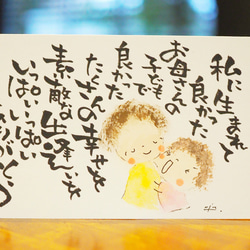 私に生まれて
良かった
お母さんの
子どもで
良かった
たくさんの幸せを
素敵な出逢いを
いっぱいいっぱい
ありがとう